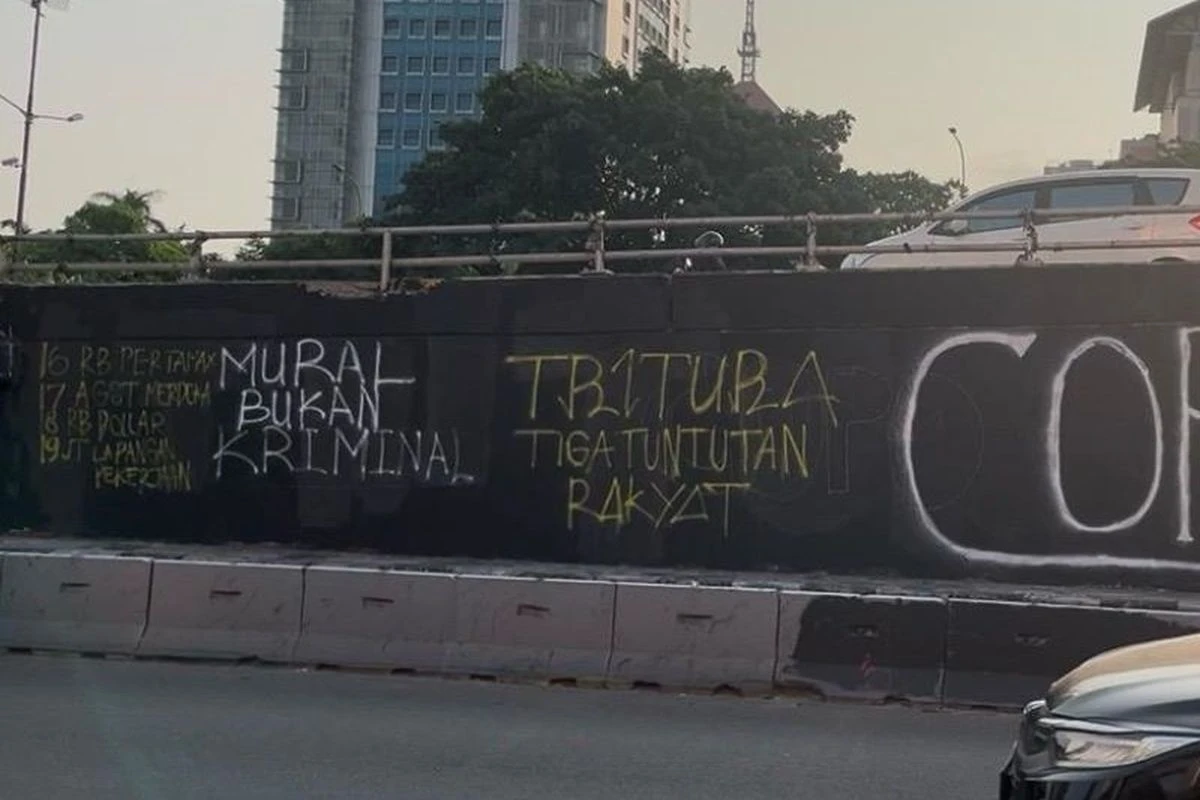 16 RB PERTAMAX
17 AGST MERDEKA
18 RB DOLLAR
19 JT LAPANGAN
PEKERJAAN
MURAL
BUKAN
KRIMINAL
TRITURA
TIGA TUNTUTAN
RAKYAT
COR